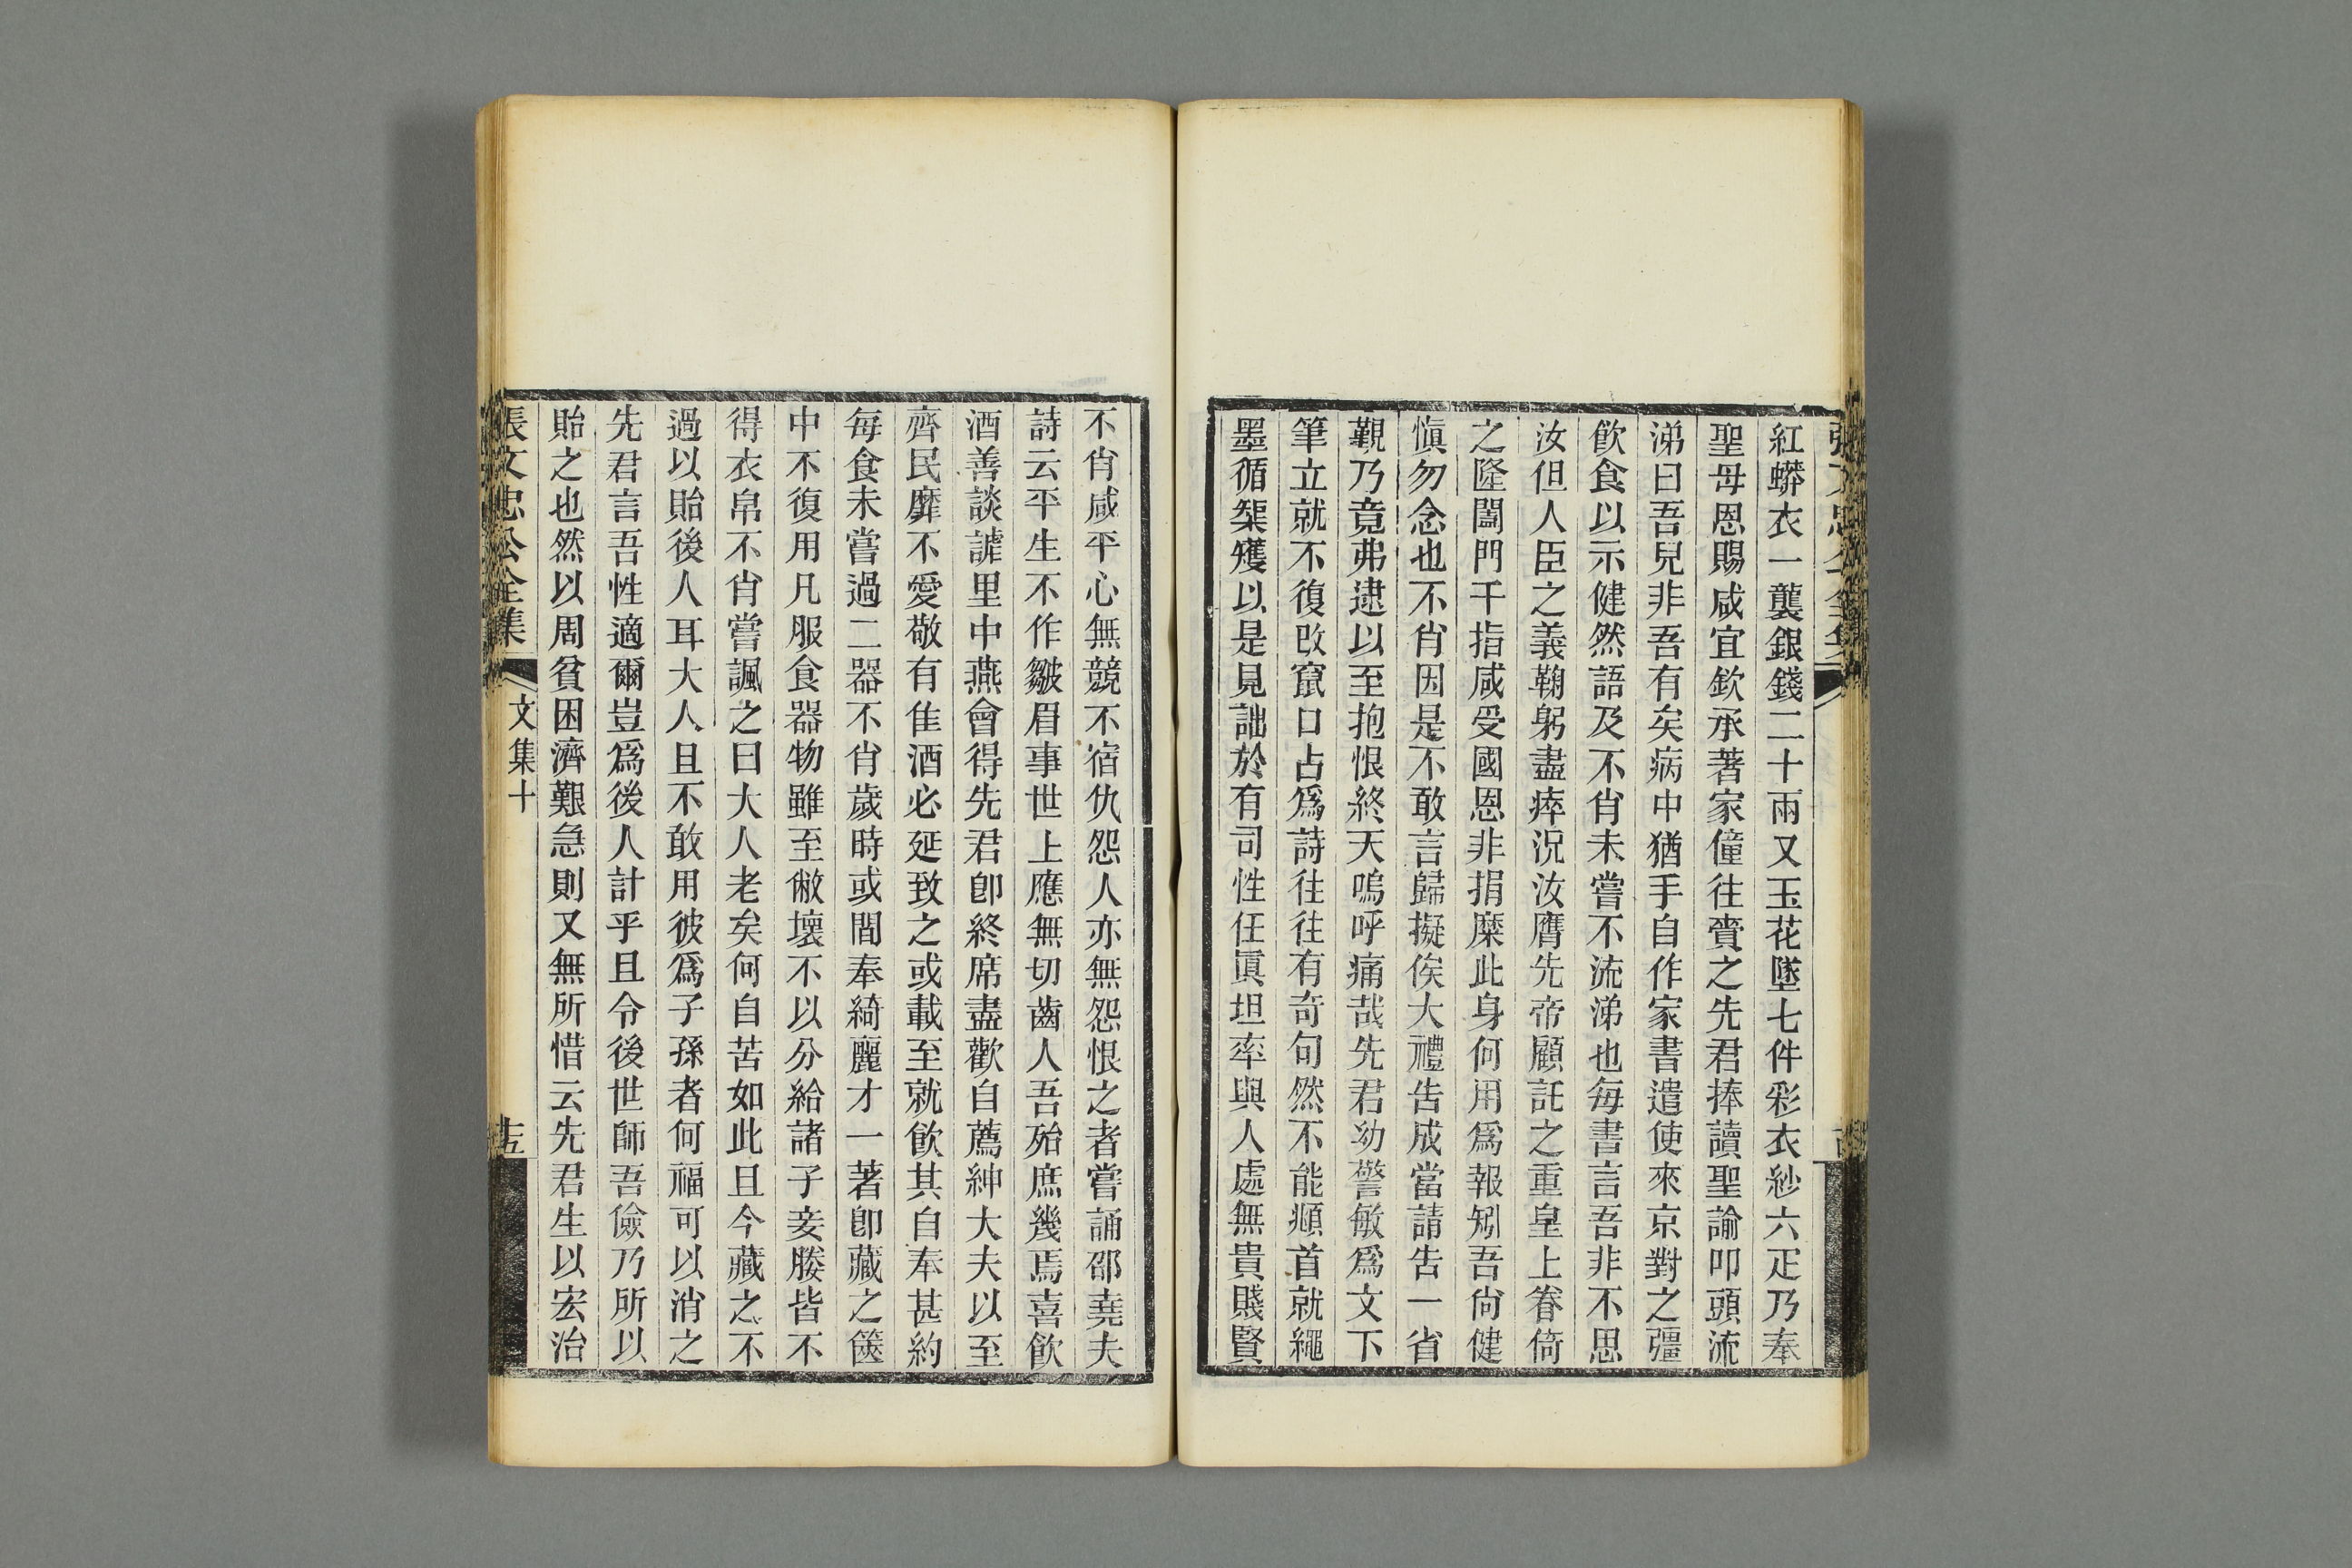 紅蟒衣一襲銀錢二十兩又玉花墜七件彩衣紗六疋乃奉
聖母恩賜咸宜欽承著家僮往賫之先君捧讀聖諭叩頭流
涕曰吾兒非吾有矣病中猶手自作家書遣使來京對之彊
飲食以示健然語及不肖未嘗不流涕也每書言吾非不思
汝但人臣之義鞠躬盡瘁況汝膺先帝顧託之重皇上眷倚
之隆闔門千指咸受國恩非捐糜此身何用爲報矧吾尙健
愼勿念也不肖因是不敢言歸擬俟大禮告成當請告一省
覲乃竟弗逮以至抱恨終天嗚呼痛哉先君幼警敏爲文下
筆立就不復改竄口占爲詩往往有奇句然不能頫首就繩
墨循榘矱以是見詘於有司性任眞坦率與人處無貴賤賢
不肖咸平心無競不宿仇怨人亦無怨恨之者嘗誦邵堯夫
詩云平生不作皺眉事世上應無切齒人吾殆庶幾焉喜飮
酒善談謔里中燕會得先君卽終席盡歡自薦紳大夫以至
齊民靡不愛敬有佳酒必延致之或載至就飮其自奉甚約
每食未嘗過二器不肖歲時或間奉綺麗才一著卽藏之篋
中不復用凡服食器物雖至敝壞不以分給諸子妾媵皆不
得衣帛不肖嘗諷之曰大人老矣何自苦如此且今藏之不
過以貽後人耳大人且不敢用彼爲子孫者何福可以消之
先君言吾性適爾豈爲後人計乎且令後世師吾儉乃所以
貽之也然以周貧困濟艱急則又無所惜云先君生以宏治
張文忠公全集 文集十 十五